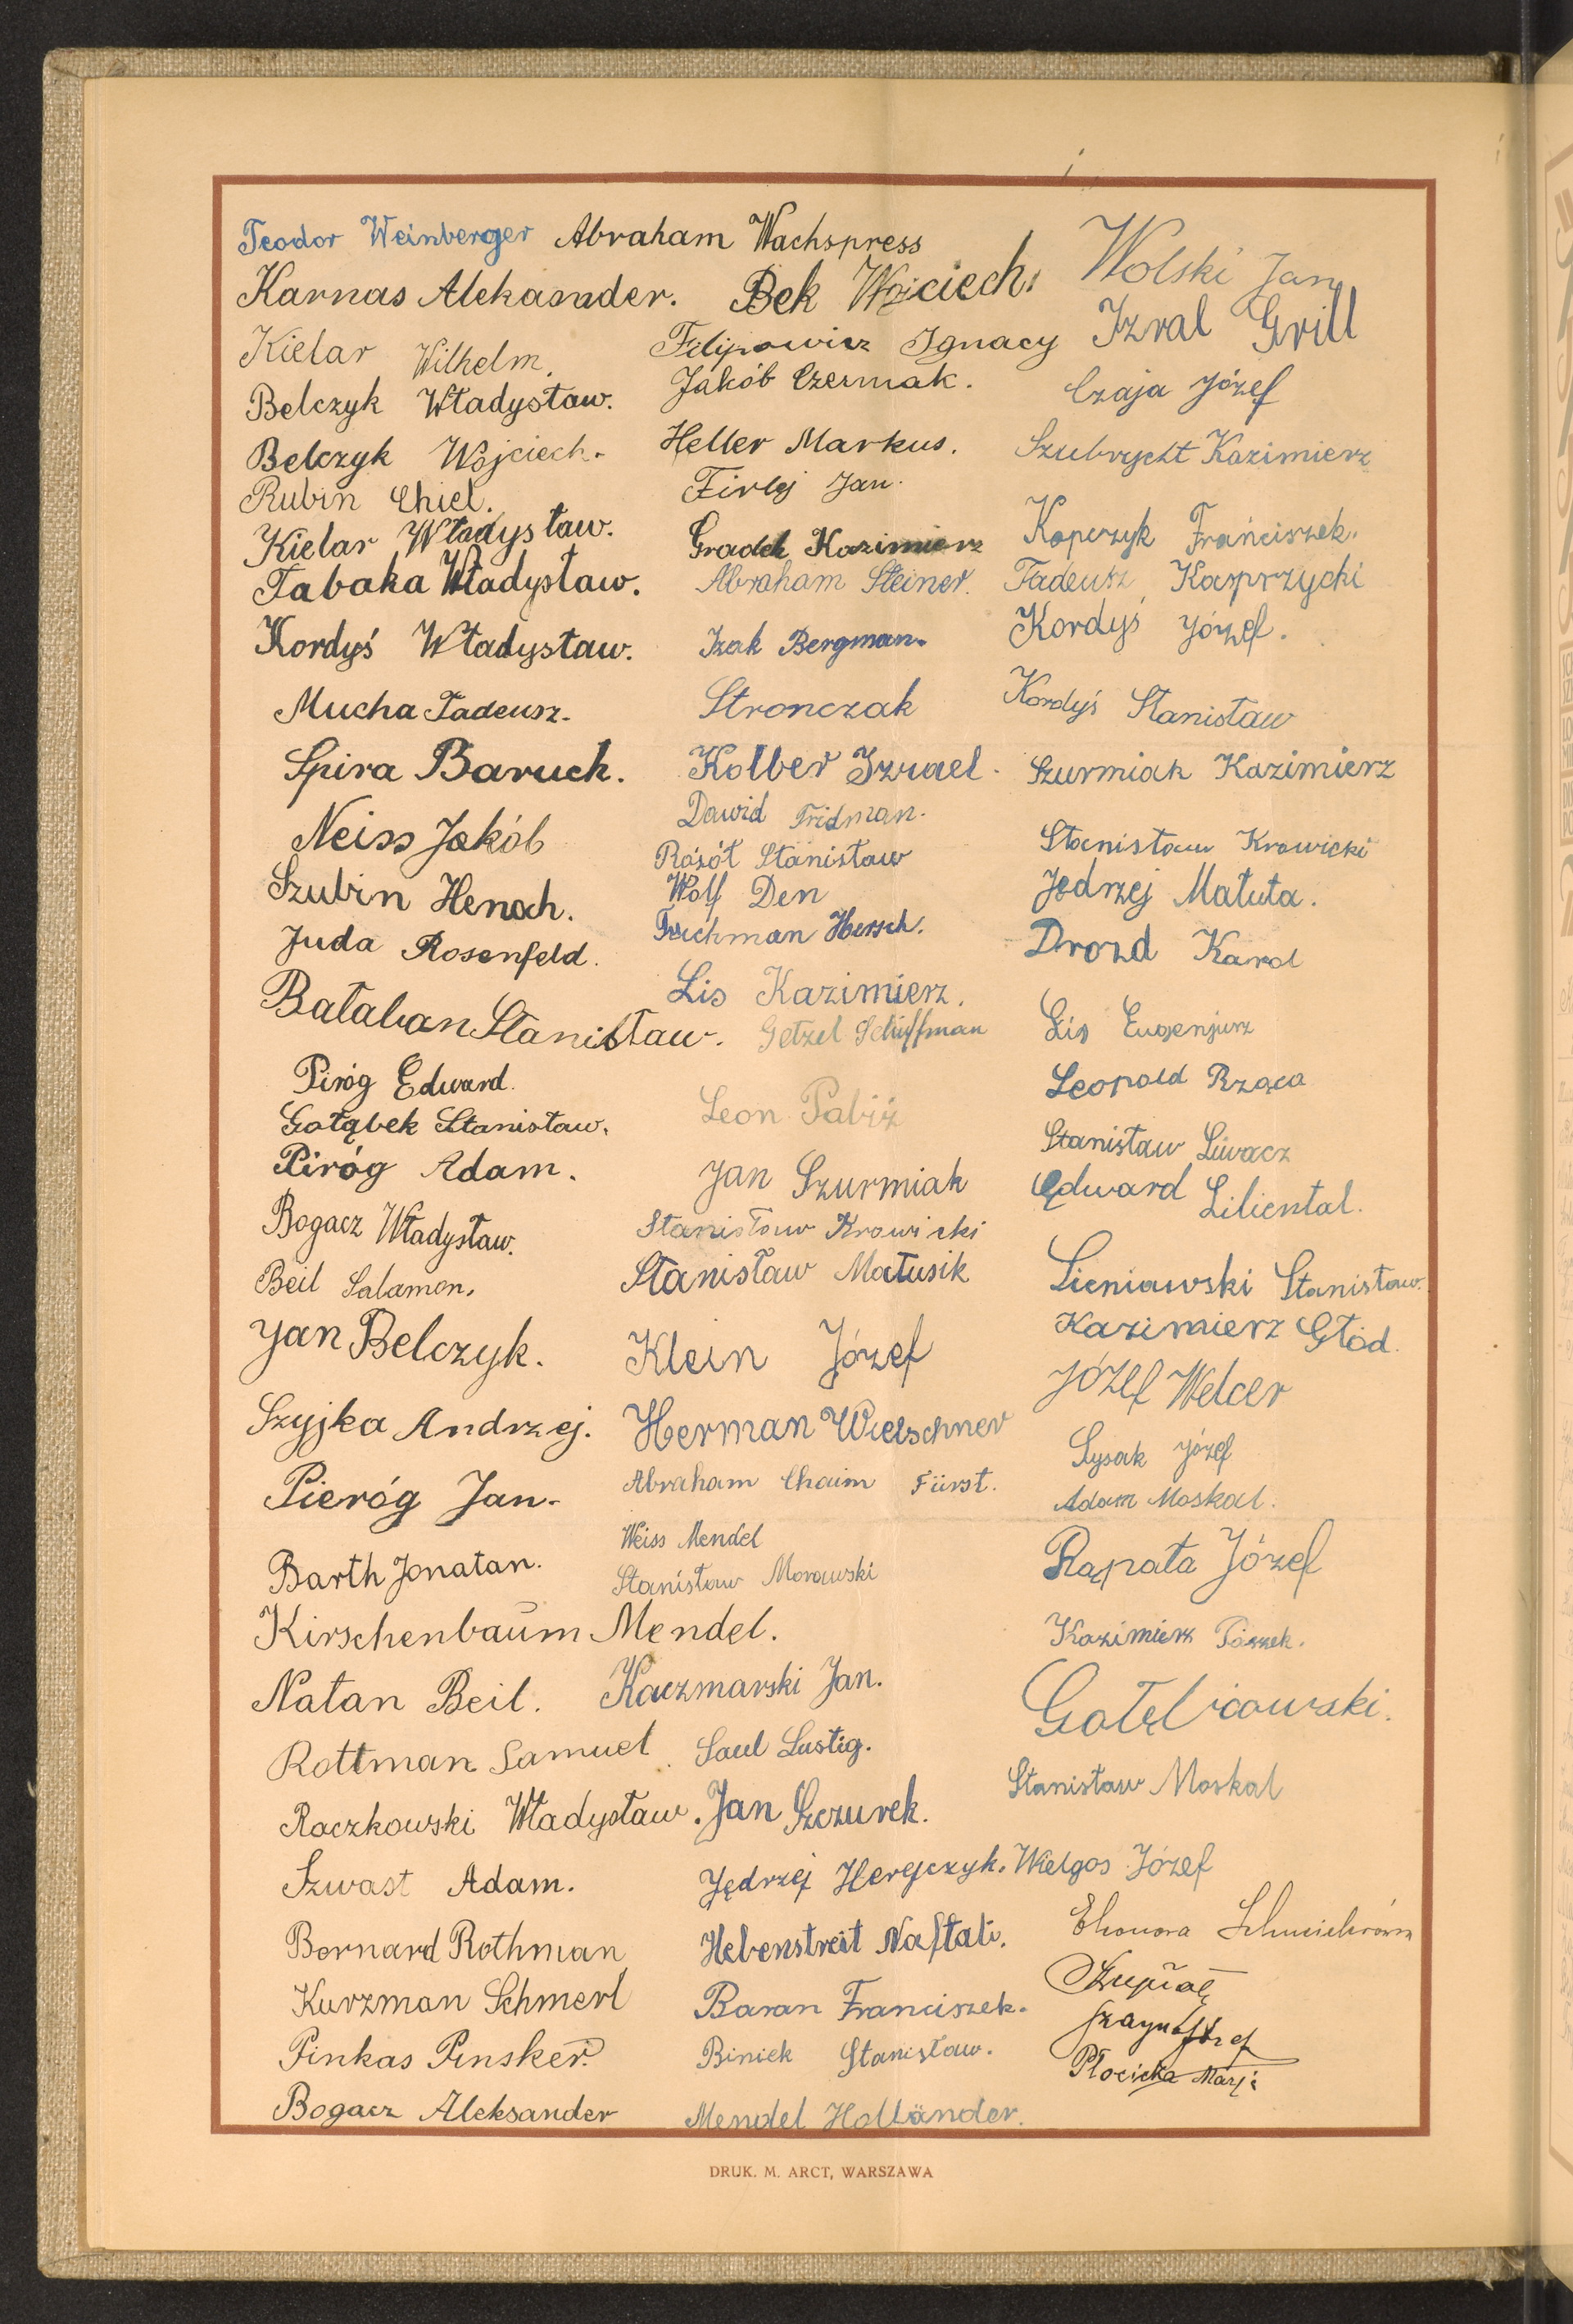 Teodor Weinberger Abraham Wachspress
Karnas Aleksander. Bek Wojciech.
Wolski Jan
Kielar Wilhelm.
Filipowicz Ignacy
Izral Grill
Belczyk Władysław.
Jakób Czermak.
Czaja Józef
Belczyk Wojciech.
Heller Markus.
Szubrycht Kazimierz
Rubin Chiel.
Firlej Jan.
Kielar Władysław.
Gradek Kazimierz
Koperzyk Franciszek.
Tabaka Władysław.
Abraham Steiner.
Tadeusz Kasprzycki
Kordyś Władysław.
Izak Bergman.
Kordyś Józef.
Mucha Tadeusz.
Stronczak
Kordyś Stanisław
Spira Baruch.
Kolber Izrael.
Szurmiak Kazimierz
Neiss Jakób
Dawid Fridman.
Stanisław Krowicki
Szubin Henoch.
Stanisław
Wolf Den
Jędrzej Matuta.
Juda Rosenfeld.
Hersch.
Drozd Karol
Bałaban Stanisław.
Lis Kazimierz.
Getzel Schiffman
Lis Eugenjusz
Piróg Edward.
Leopold Rząsa
Gołąbek Stanisław.
Leon
Stanisław
Piróg Adam.
Jan Szurmiak
Edward Liliental.
Bogacz Władysław.
Stanisław Krowicki
Beil Salamon.
Stanisław Matusik
Sieniawski Stanisław.
Jan Belczyk.
Klein Józef
Kazimierz Głód.
Józef Welcer
Szyjka Andrzej.
Herman Wielschner
Sysak Józef
Pieróg Jan.
Abraham Chaim Fürst.
Adam Moskal.
Weiss Mendel
Barth Jonatan.
Stanisław Morawski
Rąpała Józef
Kirschenbaum Mendel.
Kazimierz
Natan Beil.
Kaczmarski Jan.
Gołębiowski.
Rottman Samuel
Saul Lustig.
Stanisław Moskal
Raczkowski Władysław.
Jan Szczurek.
Szwast Adam.
Jędrzej Herejczyk.
Wielgos Józef
Bernard Rothman
Hebenstreit Naftali.
Kurzman Schmerl
Baran Franciszek.
Pinkas Pinsker.
Biniek Stanisław.
Płocicka Marja
Bogacz Aleksander
Mendel Holländer.
DRUK. M. ARCT, WARSZAWA